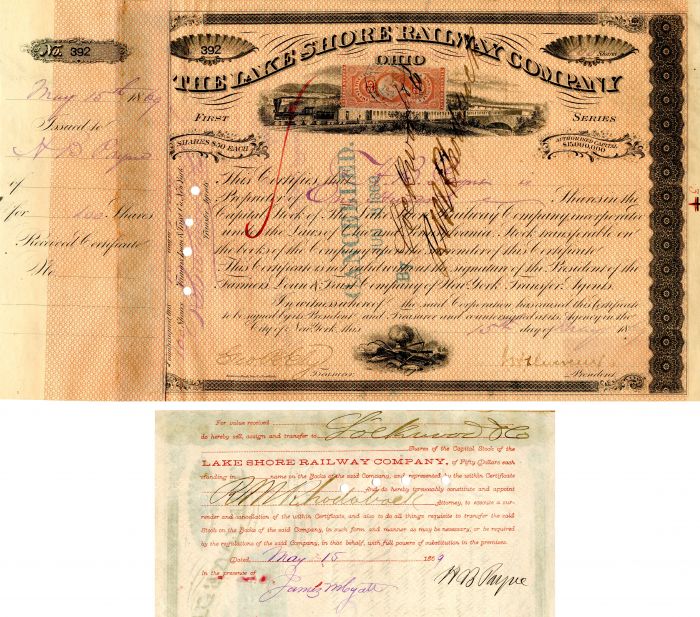 No. 392
May 15th 1869
Issued to
H B Payne
of
for Shares
Received Certificate
No
392
Shares
THE LAKE SHORE RAILWAY COMPANY
OHIO
FIRST
SERIES
SHARES $50 EACH
AUTHORIZED CAPITAL $15,000,000
CANCELLED.
This Certifies that H B Payne is
Proprietor of One Hundred Shares in the
Capital Stock of The Lake Shore Railway Company, incorporated
under the Laws of Ohio and Pennsylvania. Stock transferable on
the books of the Company upon the surrender of this Certificate
This Certificate is not valid without the signature of the President of the
Farmers Loan & Trust Company of New York Transfer Agents.
In witness whereof the said Corporation has caused this Certificate
to be signed by its President and Treasurer and countersigned at its Agency in the
City of New York, this 15th day of May 18
Treasurer
President
For value received
do hereby sell, assign and transfer to Lockwood & Co
Shares of the Capital Stock of the
LAKE SHORE RAILWAY COMPANY, of Fifty Dollars each
standing in name on the Books of the said Company, and represented by the within Certificate
And do hereby irrevocably constitute and appoint
Attorney, to execute a sur-
render and cancellation of the within Certificate, and also to do all things requisite to transfer the said
Stock on the Books of the said Company, in such form and manner as may be necessary, or be required
by the regulations of the said Company, in that behalf, with full powers of substitution in the premises.
Dated, May 15 1869
In the presence of
H B Payne